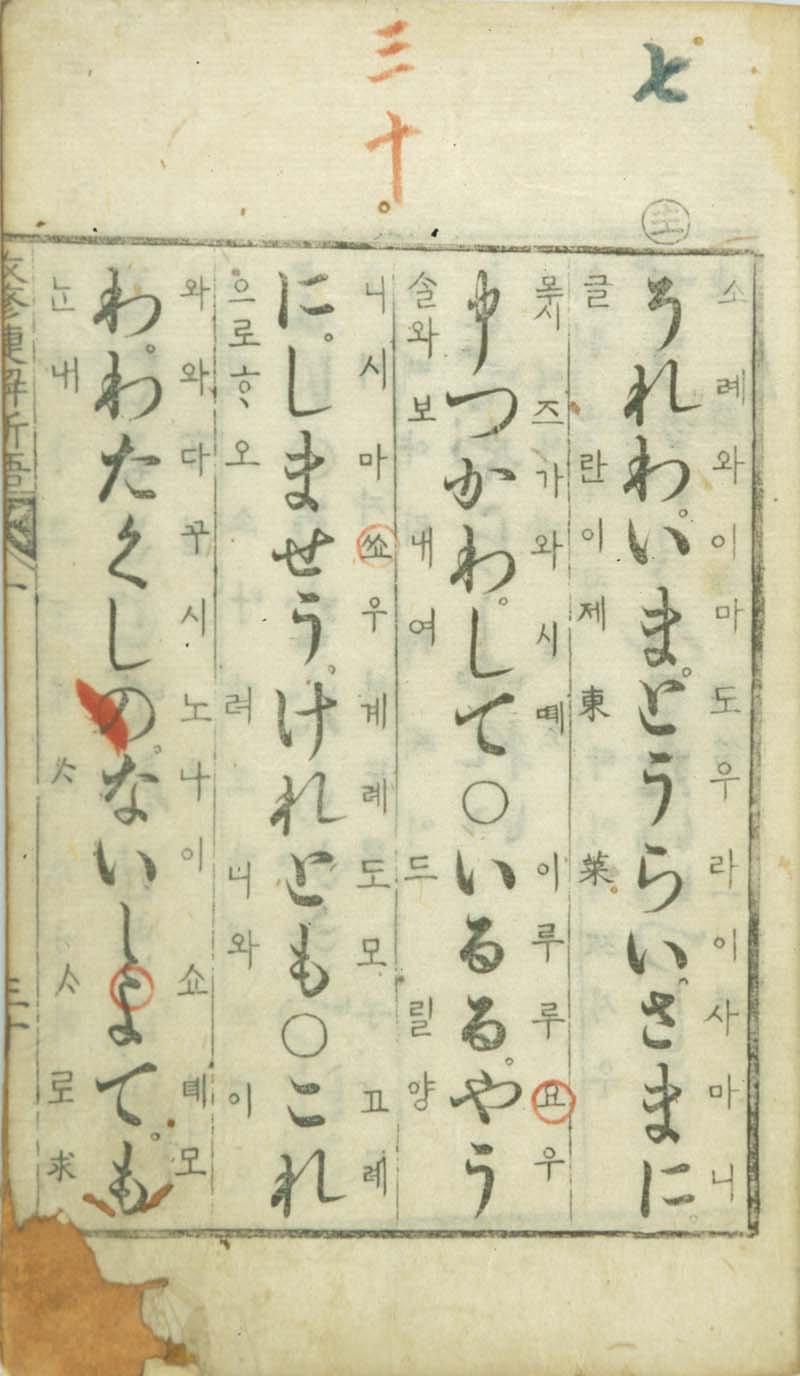 七
三十
主
소례와이마도우라이사마니
それわ。いま。とうらい。さまに。
글란이제東萊
몯시즈가와시ᄯᅦ이루루요우
申つかわ。して○いるる。やう
솔와보내여드릴양
니시마쑈우계례도모고례
に。しませう。けれとも○これ
으로ᄒᆞ오려니와이
와와다꾸시노나이쇼ᄯᅦ모
わ。わたくしの。ないしよて。も
ᄂᆞᆫ내ᄉᆞᄉᆞ로求
改修捷解新語 一 三十